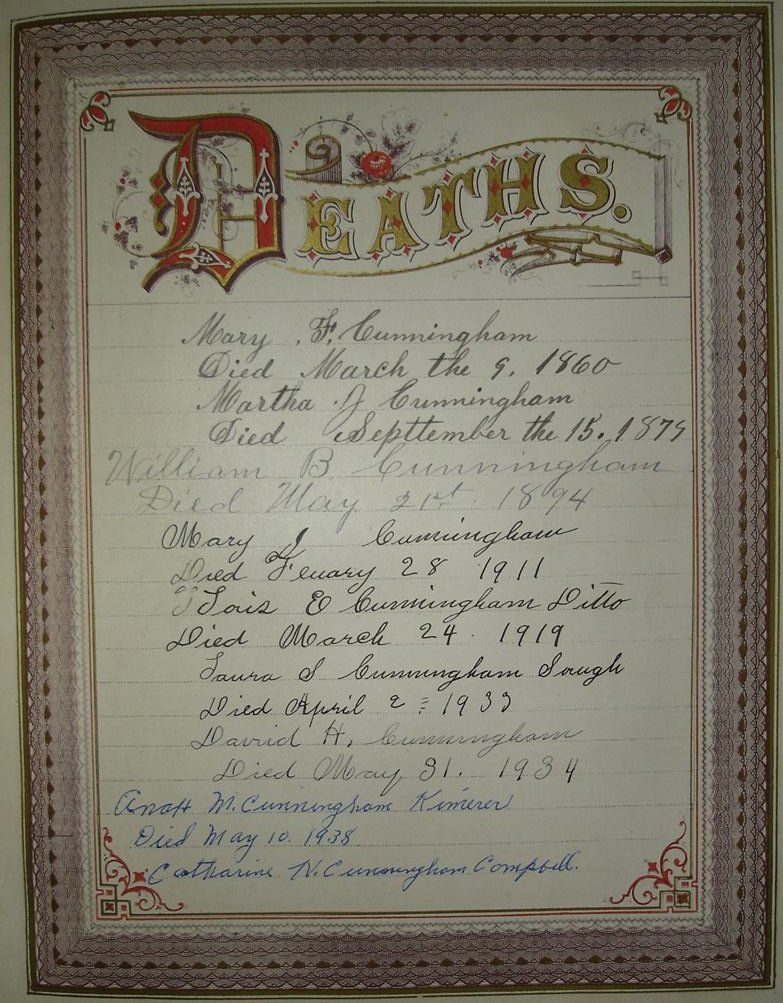 DEATHS.
Mary . F. Cunningham
Died March the 9. 1860
Martha J Cunningham
Died Septtember the 15. 1879
William B Cunningham
Died May 21st. 1894
Mary J Cunningham
Died Feuary 28 1911
Lois E Cunningham Ditto
Died March 24. 1919
Laura S Cunningham Sough
Died April 2 = 1933
David H. Cunningham
Died May 31. 1934
M. Cunningham Kimerer
Died May 10. 1938
Catharine N. Cunningham Campbell.